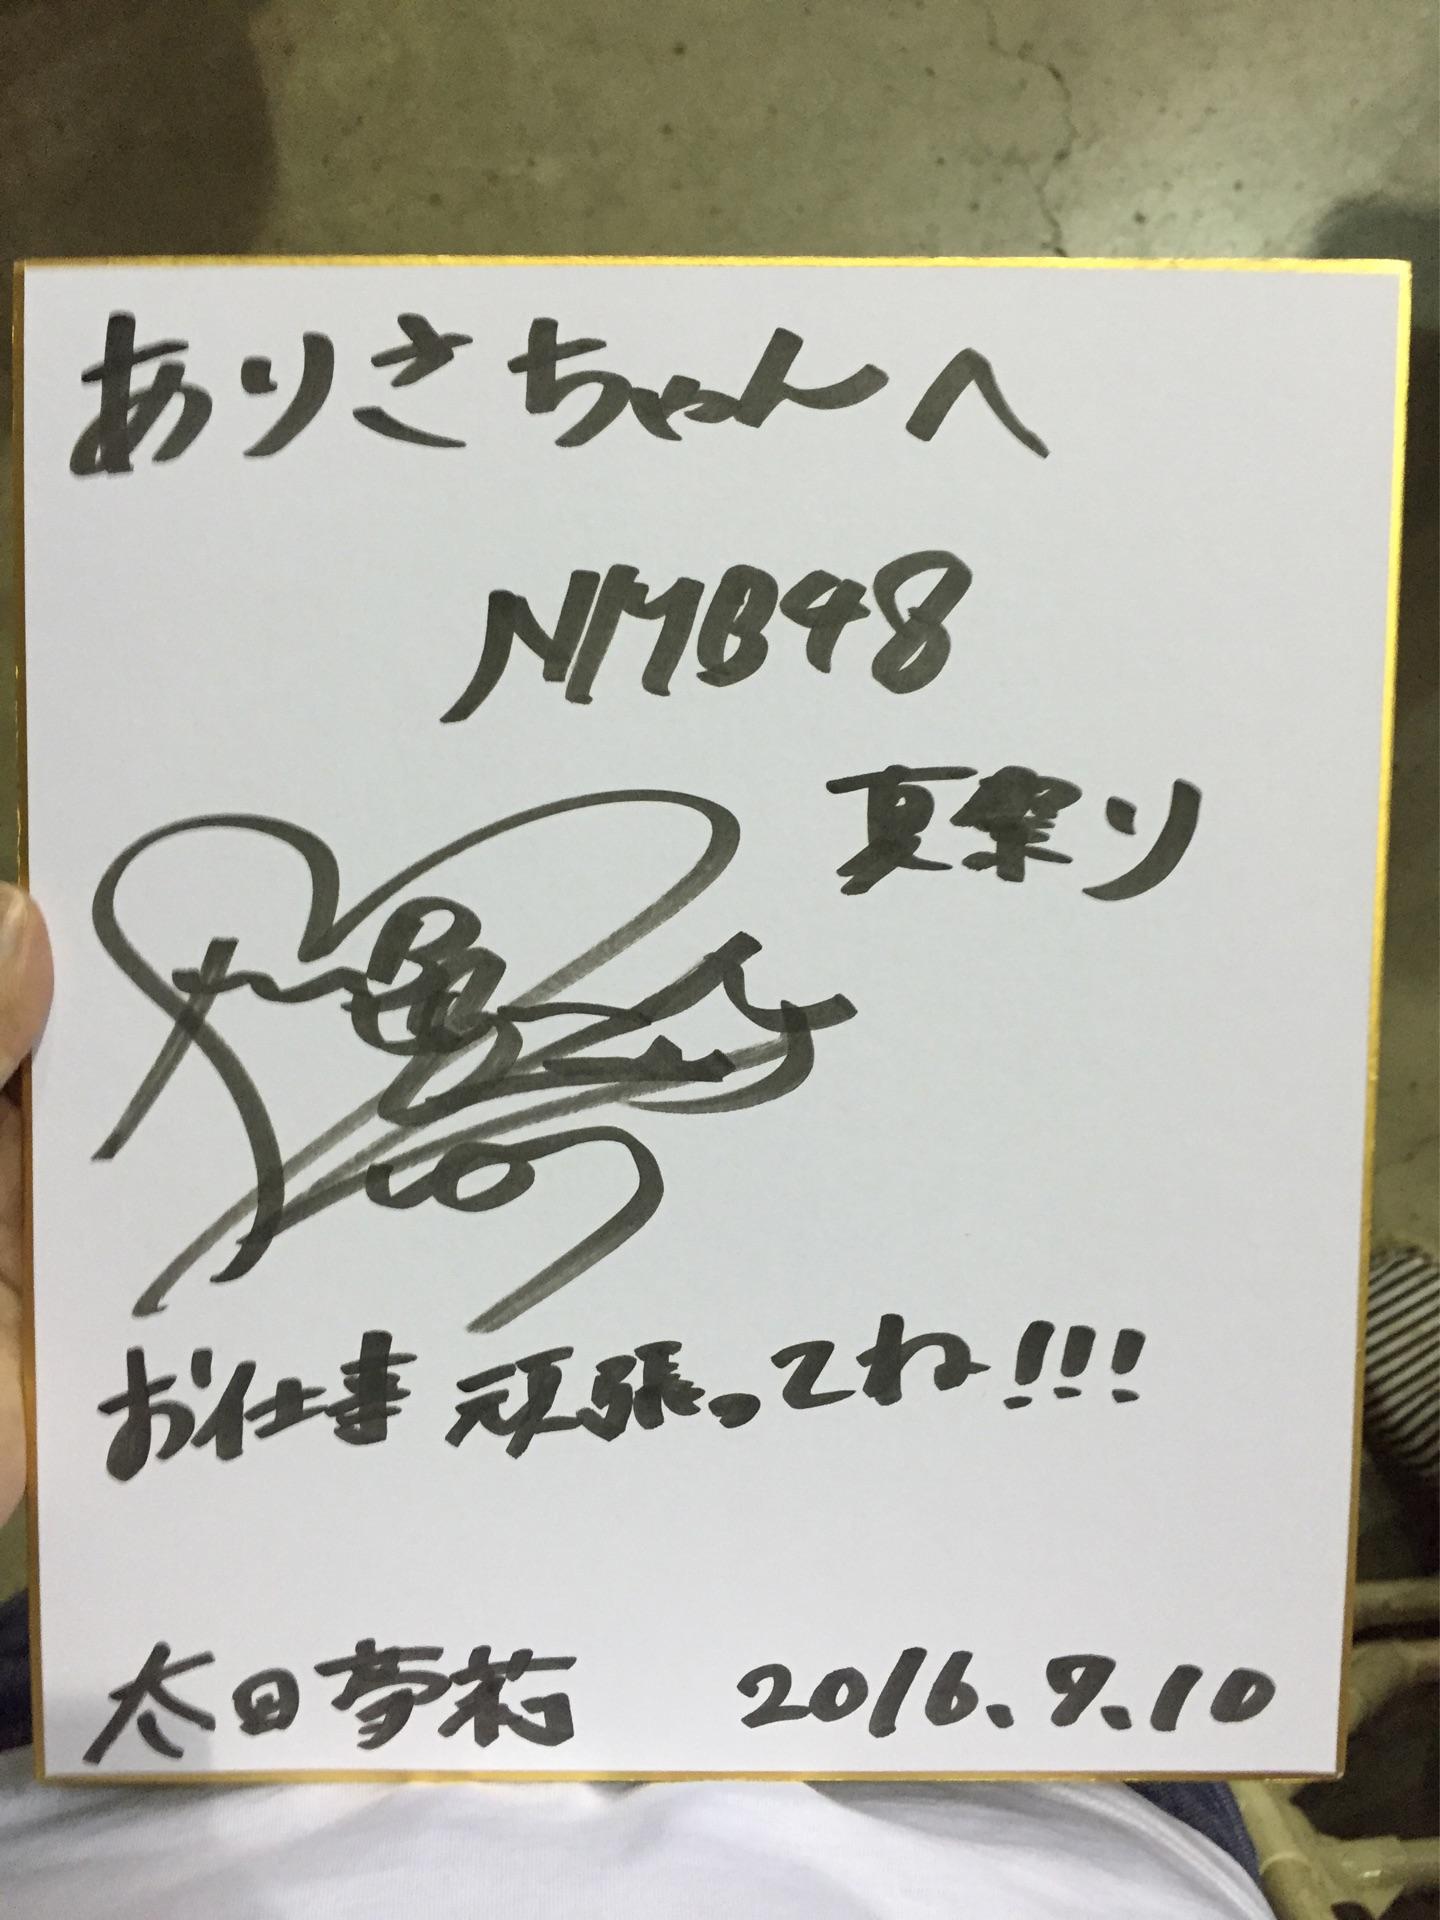 ありさちゃんへ
NMB48
夏祭り
お仕事頑張ってね!!!
太田夢莉 2016.9.10